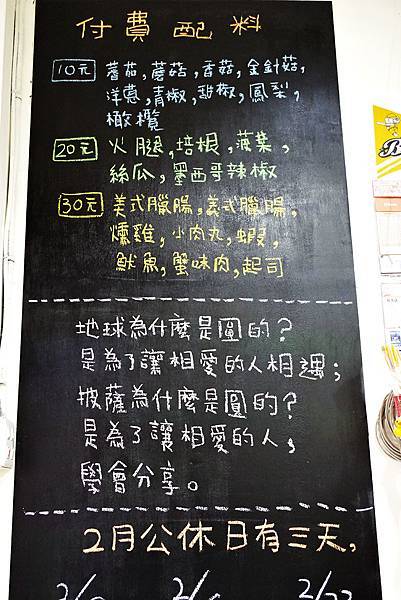 付費配料
10元 蕃茄,蘑菇,香菇,金針菇,
洋蔥,青椒,甜椒,鳳梨,
橄欖
20元 火腿,培根,菠菜,
絲瓜,墨西哥辣椒
30元 美式臘腸,義式臘腸,
燻雞,小肉丸,蝦,
魷魚,蟹味肉,起司
地球為什麼是圓的?
是為了讓相愛的人相遇;
披薩為什麼是圓的?
是為了讓相愛的人,
學會分享。
2月公休日有三天,